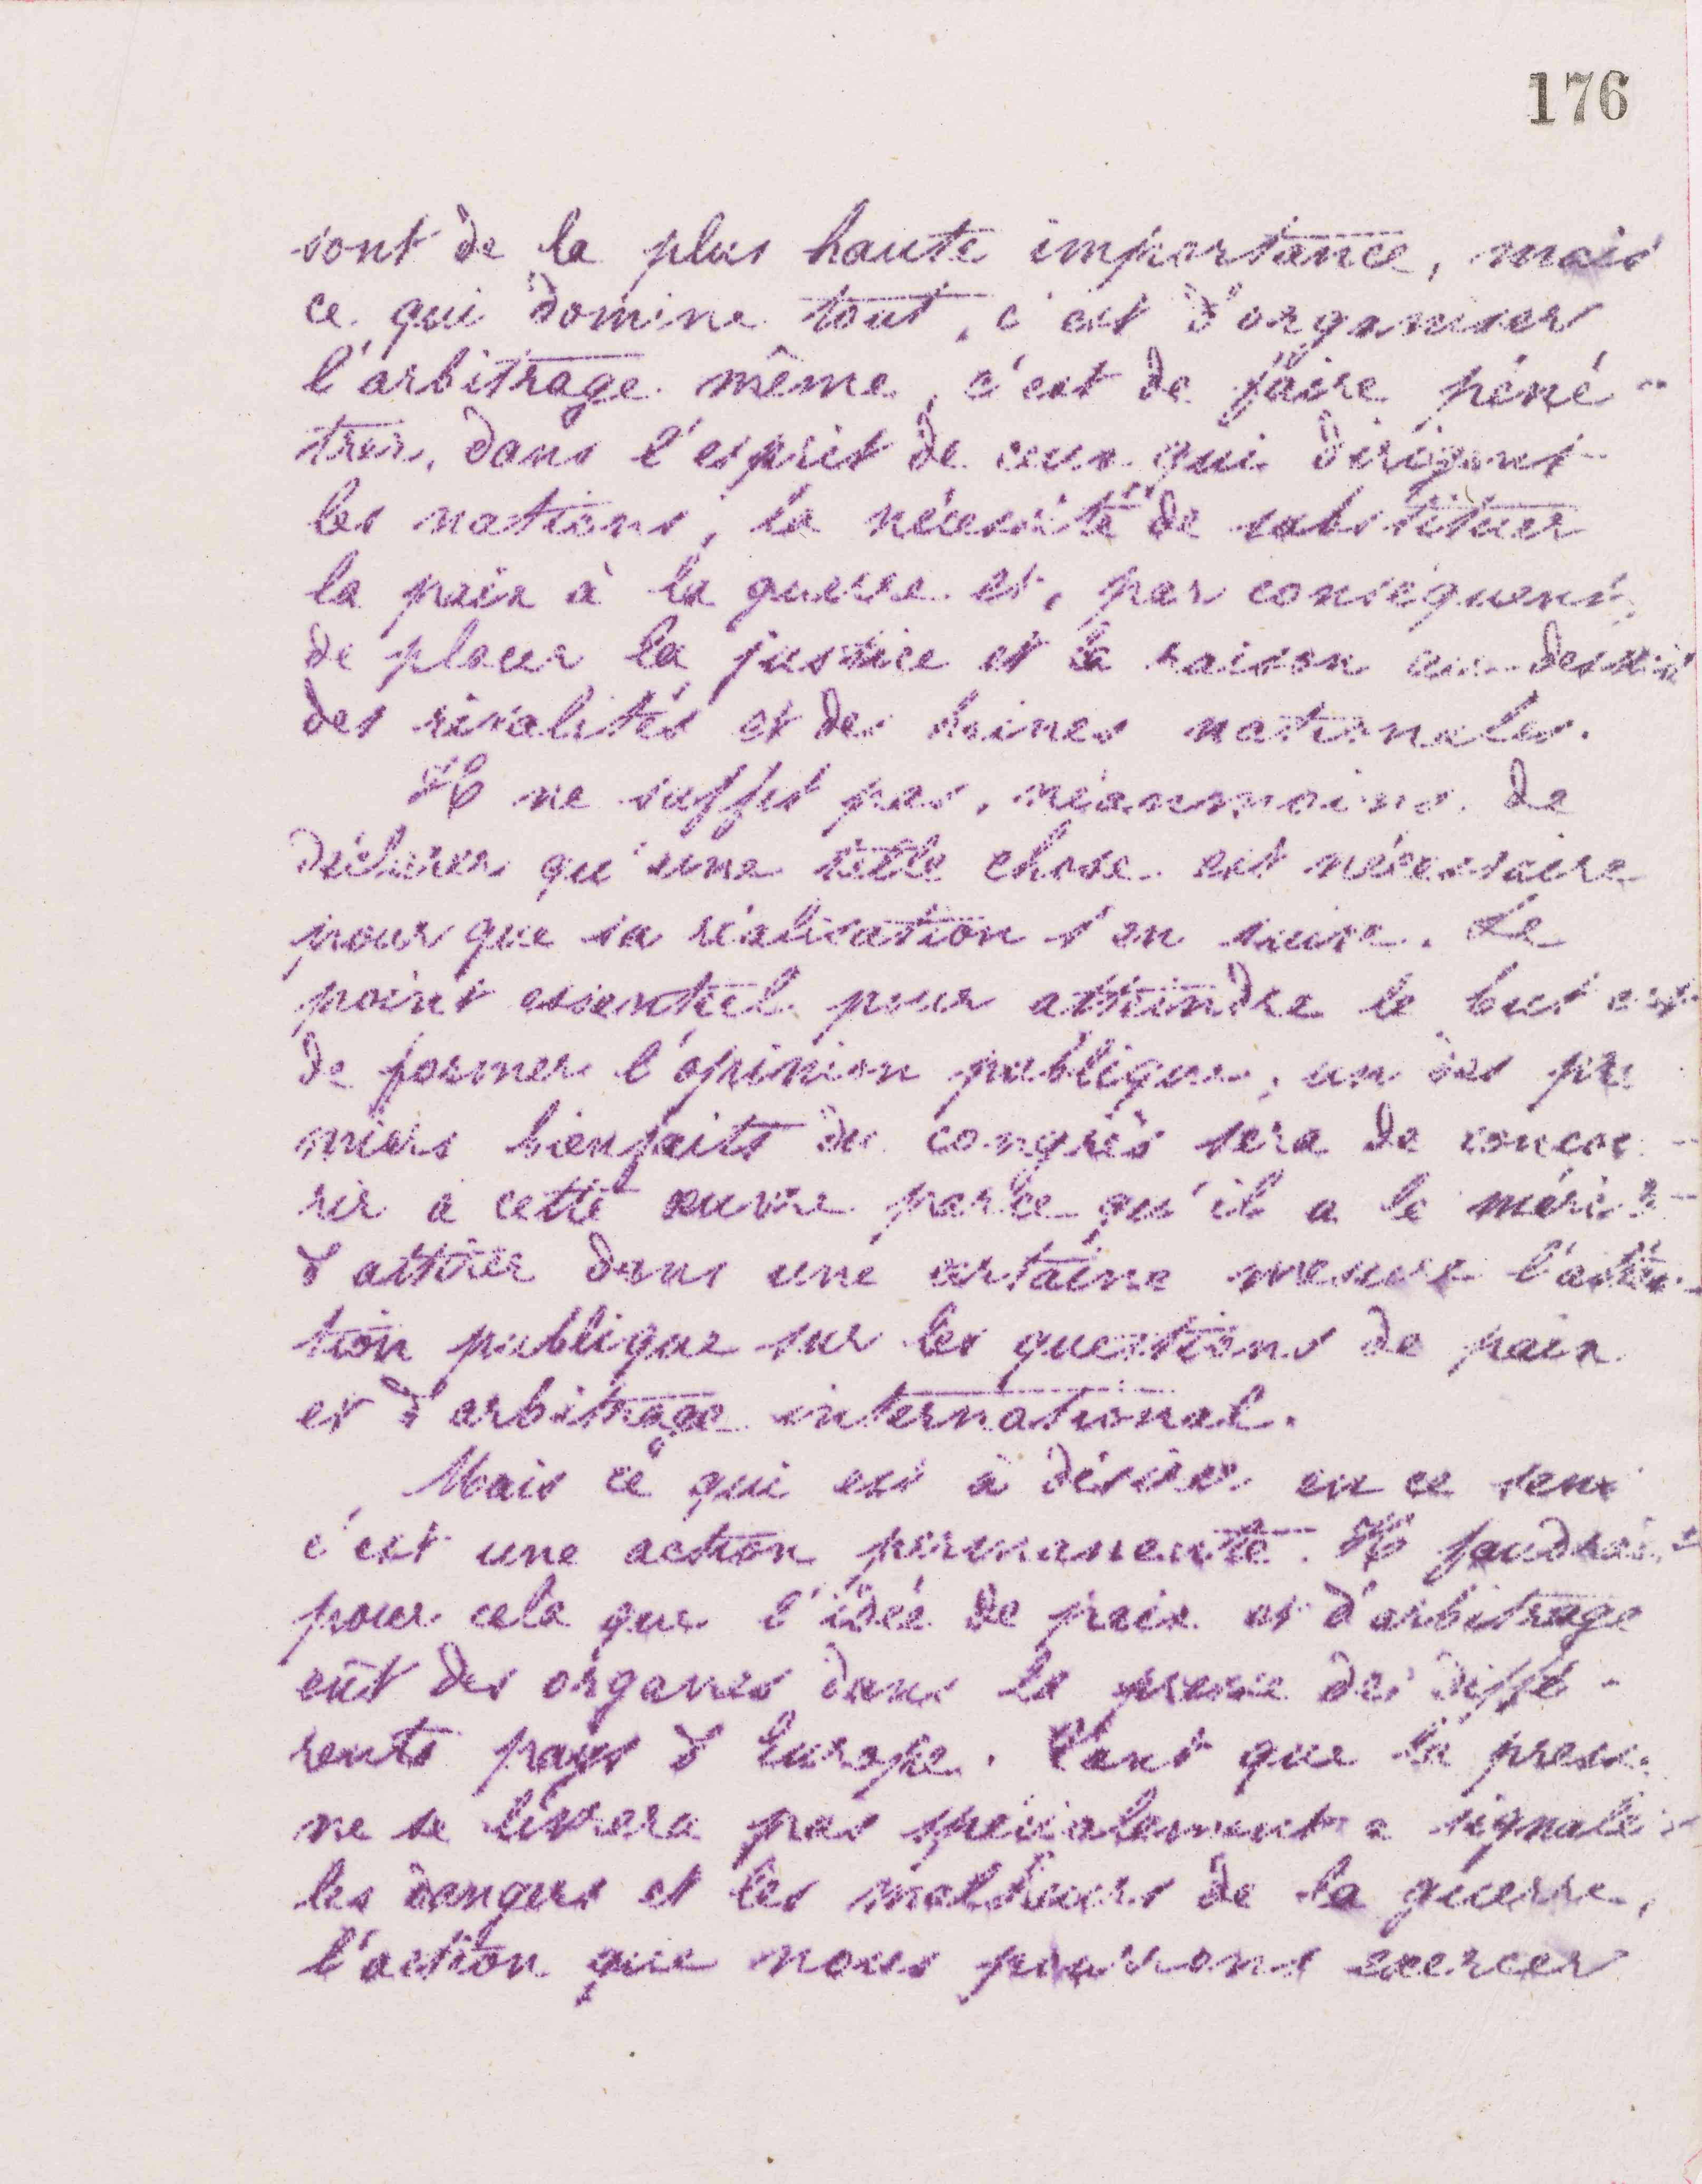 176
sont de la plus haute importance, mais
ce qui domine tout, c'est d'organiser
l'arbitrage même, c'est de faire péné-
trer, dans l'esprit de ceux qui dirigent
les nations, la nécessité de substituer
la paix à la guerre et, par conséquent,
de placer la justice et la raison au-dessus
des rivalités et des haines nationales.
Il ne suffit pas, néanmoins, de
déclarer qu'une telle chose est nécessaire
pour que sa réalisation s'en suive. Le
point essentiel pour atteindre le but est
de former l'opinion publique, un des pre
miers bienfaits du congrès sera de concou-
rir à cette œuvre parce qu'il a le mérite
d'attirer dans une certaine mesure l'atten-
tion publique sur les questions de paix
et d'arbitrage international.
Mais ce qui est à désirer en ce sens
c'est une action permanente. Il faudrait
pour cela que l'idée de paix et d'arbitrage
eût des organes dans la presse des diffé-
rents pays d'Europe. Tant que la presse
ne se livrera pas spécialement à signaler
les dangers et les malheurs de la guerre,
l'action que nous pourrons exercer